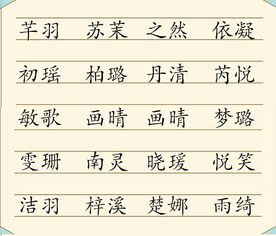 芊羽 苏茉 之然 依凝
初瑶 柏璐 丹清 芮悦
敏歌 画晴 画晴 梦璐
雯珊 南灵 晓瑗 悦笑
洁羽 梓溪 楚娜 雨绮